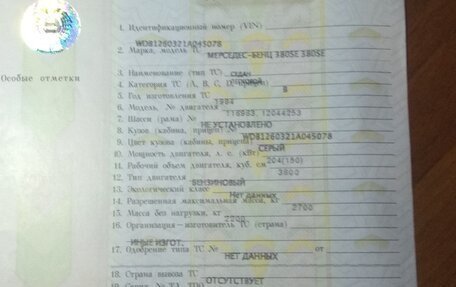 1. Идентификационный номер (VIN)
WDB1260321A045078
2. Марка, модель ТС МЕРСЕДЕС-БЕНЦ 380SE 380SE
Особые отметки
3. Наименование (тип ТС) СЕДАН
4. Категория ТС (A, B, C, D, прицеп) ЛЕГКОВОЙ
B
5. Год изготовления ТС 1984
6. Модель, № двигателя 116963, 12044253
7. Шасси (рама) № НЕ УСТАНОВЛЕНО
8. Кузов (кабина, прицеп) № WDB1260321A045078
9. Цвет кузова (кабины, прицепа) СЕРЫЙ
10. Мощность двигателя, л. с. (кВт) 204(150)
11. Рабочий объем двигателя, куб. см 3800
12. Тип двигателя БЕНЗИНОВЫЙ
13. Экологический класс Нет данных
14. Разрешенная максимальная масса, кг 2700
15. Масса без нагрузки, кг
16. Организация-изготовитель ТС (страна)
ИНЫЕ ИЗГОТ.
17. Одобрение типа ТС № НЕТ ДАННЫХ от
18. Страна вывоза ТС ОТСУТСТВУЕТ